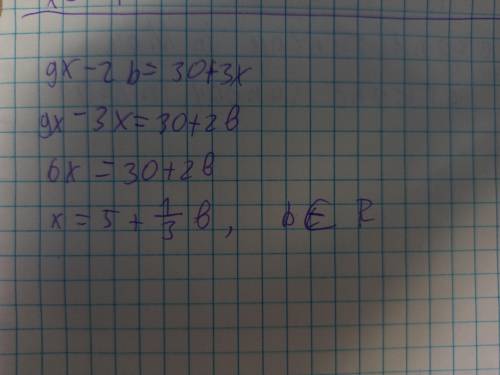 9x - 2b = 30 + 3x
9x - 3x = 30 + 2b
6x = 30 + 2b
x = 5 + 1/3 b, b ∈ R